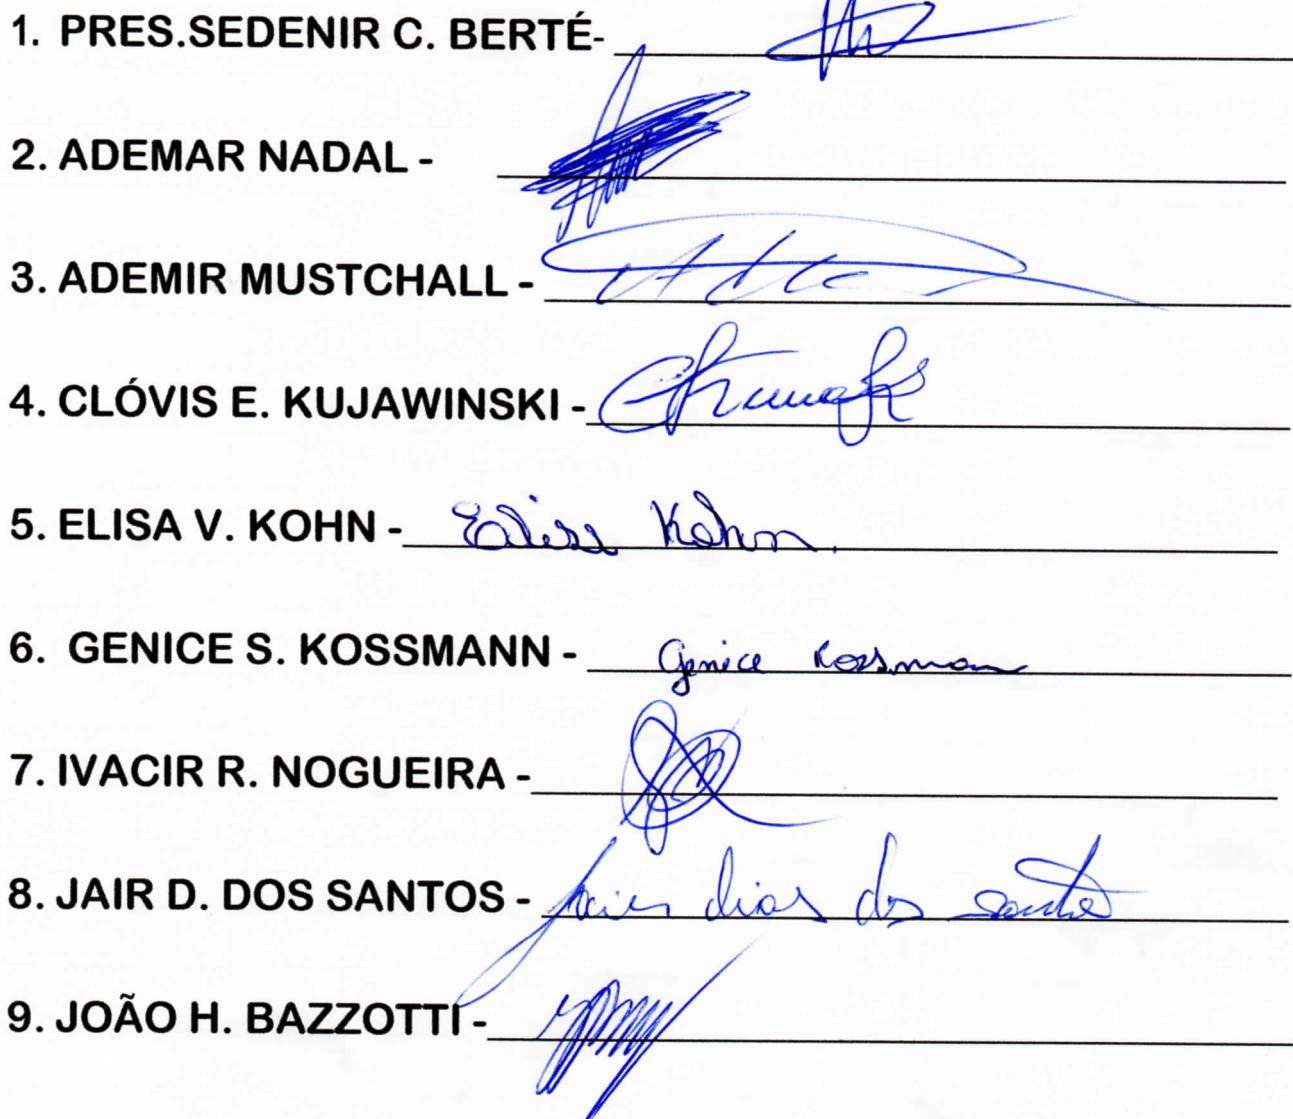 1. PRES.SEDENIR C. BERTÉ-
2. ADEMAR NADAL -
3. ADEMIR MUSTCHALL -
4. CLÓVIS E. KUJAWINSKI -
5. ELISA V. KOHN - Elisa Kohn.
6. GENICE S. KOSSMANN - Genice Kossmann
7. IVACIR R. NOGUEIRA -
8. JAIR D. DOS SANTOS - Jair dias dos santos
9. JOÃO H. BAZZOTTI -